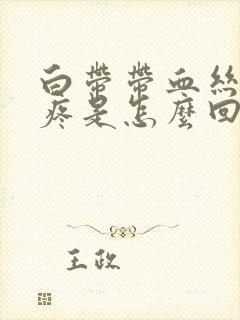 白带带血丝
疼是怎麼回
王政